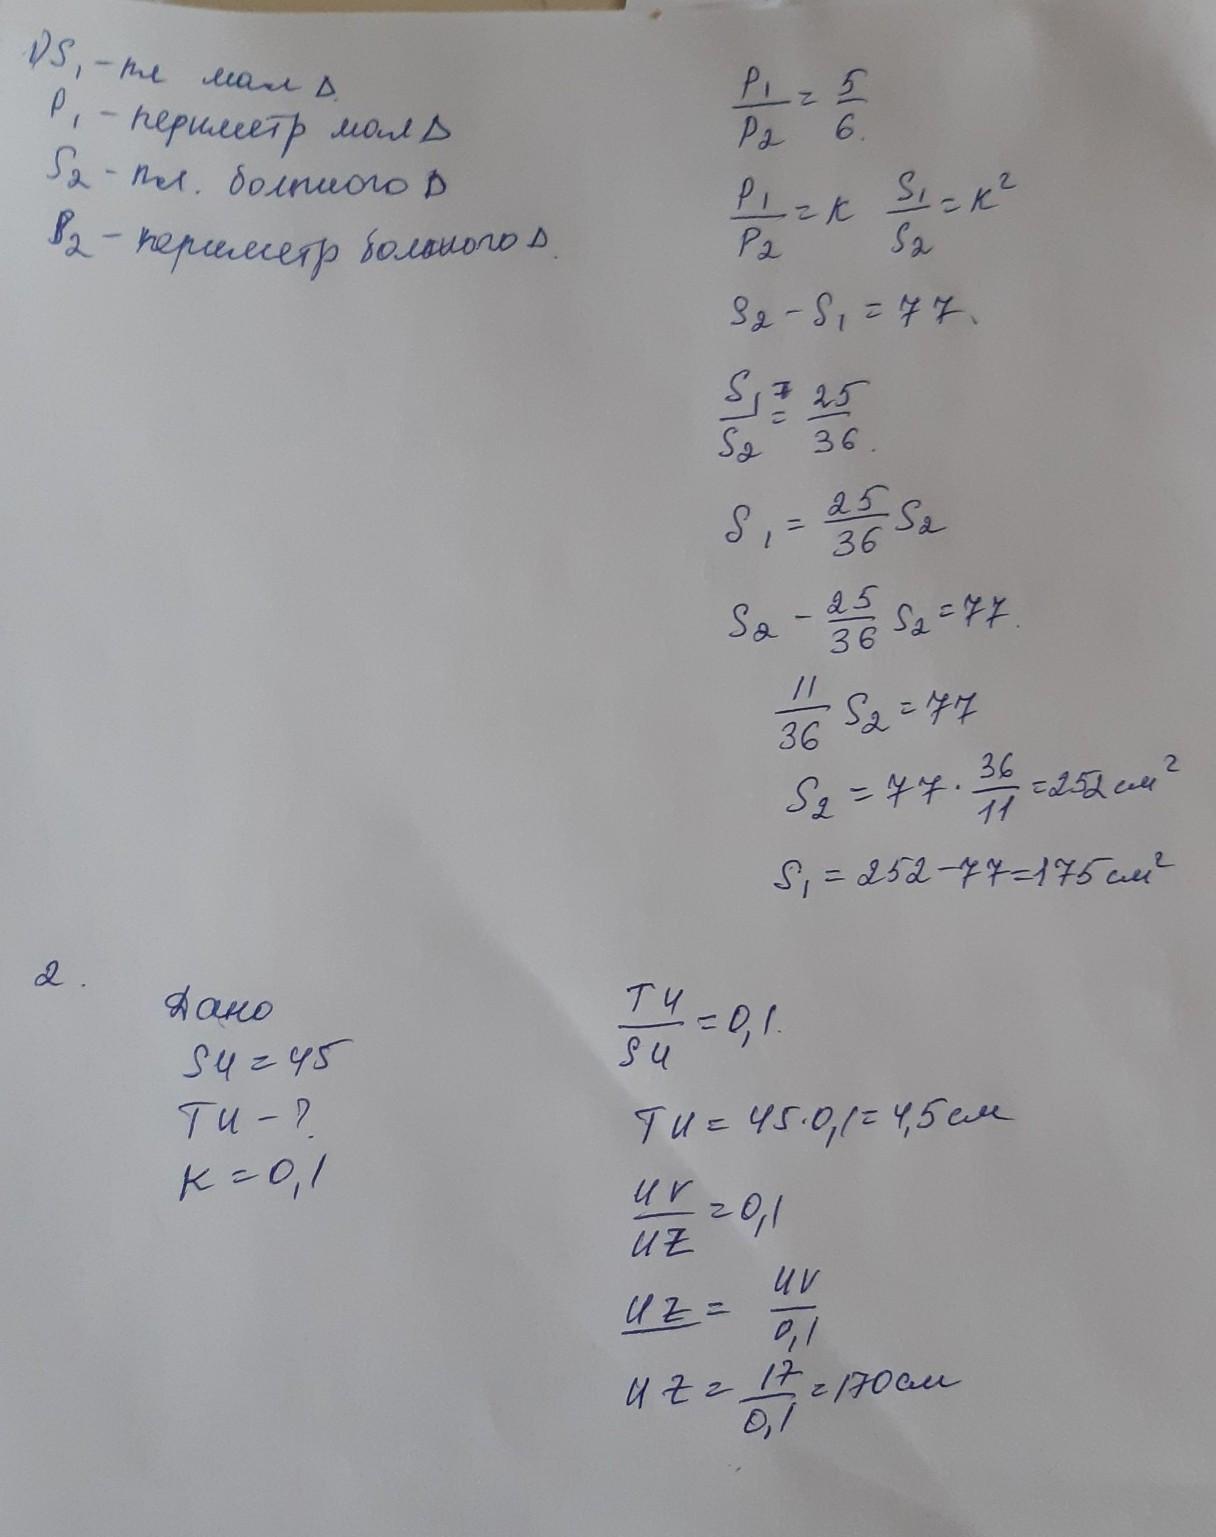 1) S₁ - пл мал Δ.
P₁ - периметр мал Δ
S₂ - пл. большого Δ
P₂ - периметр большого Δ.
P₁/P₂ = 5/6.
P₁/P₂ = к S₁/S₂ = к²
S₂ - S₁ = 77.
S₁/S₂ = 25/36.
S₁ = 25/36 S₂
S₂ - 25/36 S₂ = 77.
11/36 S₂ = 77
S₂ = 77 · 36/11 = 252 см²
S₁ = 252 - 77 = 175 см²
2.
Дано
SU = 45
TU - ?
К = 0,1
TU/SU = 0,1.
TU = 45 · 0,1 = 4,5 см
UV/UZ = 0,1
UZ = UV/0,1
UZ = 17/0,1 = 170 см